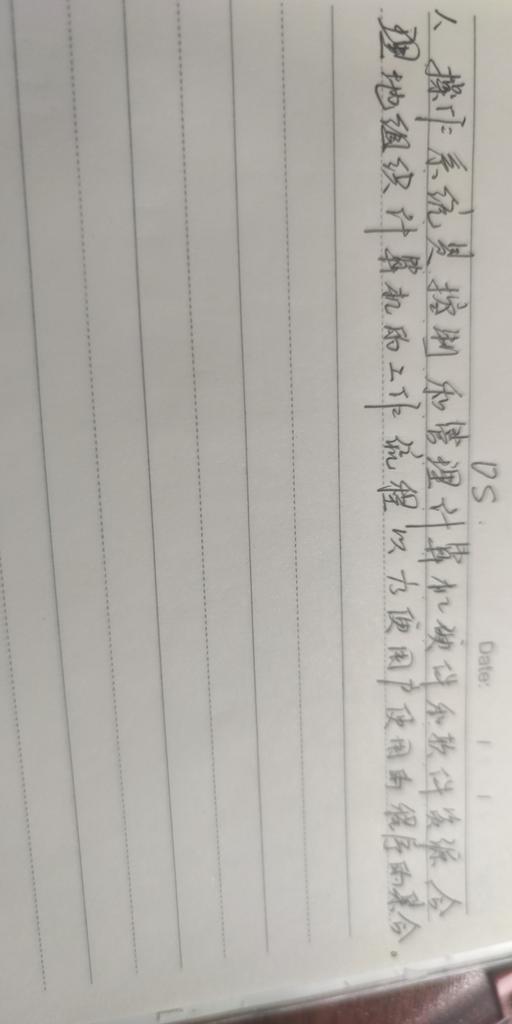 Date: / /
OS
1、操作系统是控制和管理计算机硬件和软件资源合
理地组织计算机的工作流程以方便用户使用的程序的集合.